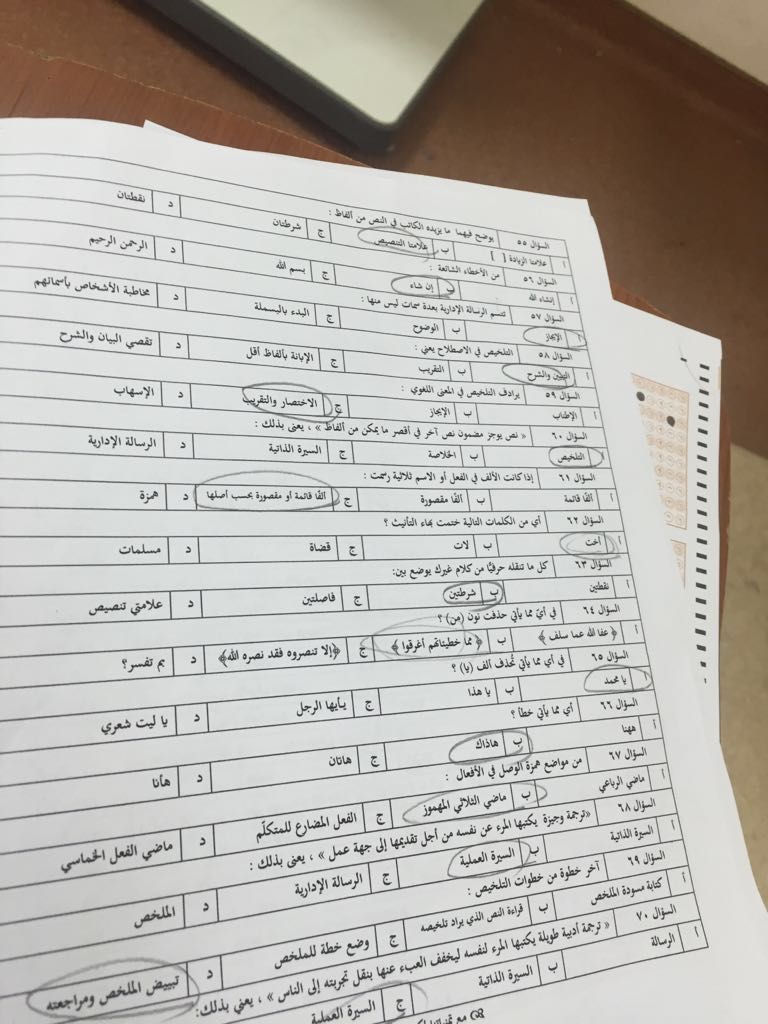 السؤال ٥٥ يوضح فيهما ما يزيده الكاتب في النص من ألفاظ :
أ علامتا الزيادة [ ] ب علامتا التنصيص ج شرطتان د نقطتان
السؤال ٥٦ من الأخطاء الشائعة :
أ إنشاء الله ب إن شاء ج بسم الله د الرحمن الرحيم
السؤال ٥٧ تتسم الرسالة الإدارية بعدة سمات ليس منها :
أ الإيجاز ب الوضوح ج البدء بالبسملة د مخاطبة الأشخاص بأسمائهم
السؤال ٥٨ التلخيص في الاصطلاح يعني :
أ التبيين والشرح ب التقريب ج الإبانة بألفاظ أقل د تقصي البيان والشرح
السؤال ٥٩ يرادف التلخيص في المعنى اللغوي :
أ الإطناب ب الإيجاز ج الاختصار والتقريب د الإسهاب
السؤال ٦٠ « نص يوجز مضمون نص آخر في أقصر ما يمكن من ألفاظ » ، يعنى بذلك :
أ التلخيص ب الخلاصة ج السيرة الذاتية د الرسالة الإدارية
السؤال ٦١ إذا كانت الألف في الفعل أو الاسم ثلاثية رسمت :
أ ألفًا قائمة ب ألفًا مقصورة ج ألفًا قائمة أو مقصورة بحسب أصلها د همزة
السؤال ٦٢ أي من الكلمات التالية ختمت بهاء التأنيث ؟
أ أخت ب لات ج قضاة د مسلمات
السؤال ٦٣ كل ما تنقله حرفيًّا من كلام غيرك يوضع بين:
أ نقطتين ب شرطتين ج فاصلتين د علامتي تنصيص
السؤال ٦٤ في أيّ مما يأتي حذفت نون (من) ؟
أ ﴿ عفا الله عما سلف ﴾ ب ﴿ مما خطيئاتهم أغرقوا ﴾ ج ﴿إلا تنصروه فقد نصره الله﴾ د بم تفسر؟
السؤال ٦٥ في أي مما يأتي تُحذف ألف (يا) ؟
أ يا محمد ب يا هذا ج يأيها الرجل د يا ليت شعري
السؤال ٦٦ أي مما يأتي خطأ ؟
أ ههنا ب هاذاك ج هاتان د هأنا
السؤال ٦٧ من مواضع همزة الوصل في الأفعال :
أ ماضي الرباعي ب ماضي الثلاثي المهموز ج الفعل المضارع للمتكلّم د ماضي الفعل الخماسي
السؤال ٦٨ «ترجمة وجيزة يكتبها المرء عن نفسه من أجل تقديمها إلى جهة عمل » ، يعنى بذلك :
أ السيرة الذاتية ب السيرة العملية ج الرسالة الإدارية د الملخص
السؤال ٦٩ آخر خطوة من خطوات التلخيص :
أ كتابة مسودة الملخص ب قراءة النص الذي يراد تلخيصه ج وضع خطة للملخص د تبييض الملخص ومراجعته
السؤال ٧٠ « ترجمة أدبية طويلة يكتبها المرء لنفسه ليخفف العبء عنها بنقل تجربته إلى الناس » ، يعني بذلك:
أ الرسالة ب السيرة الذاتية ج السيرة العملية